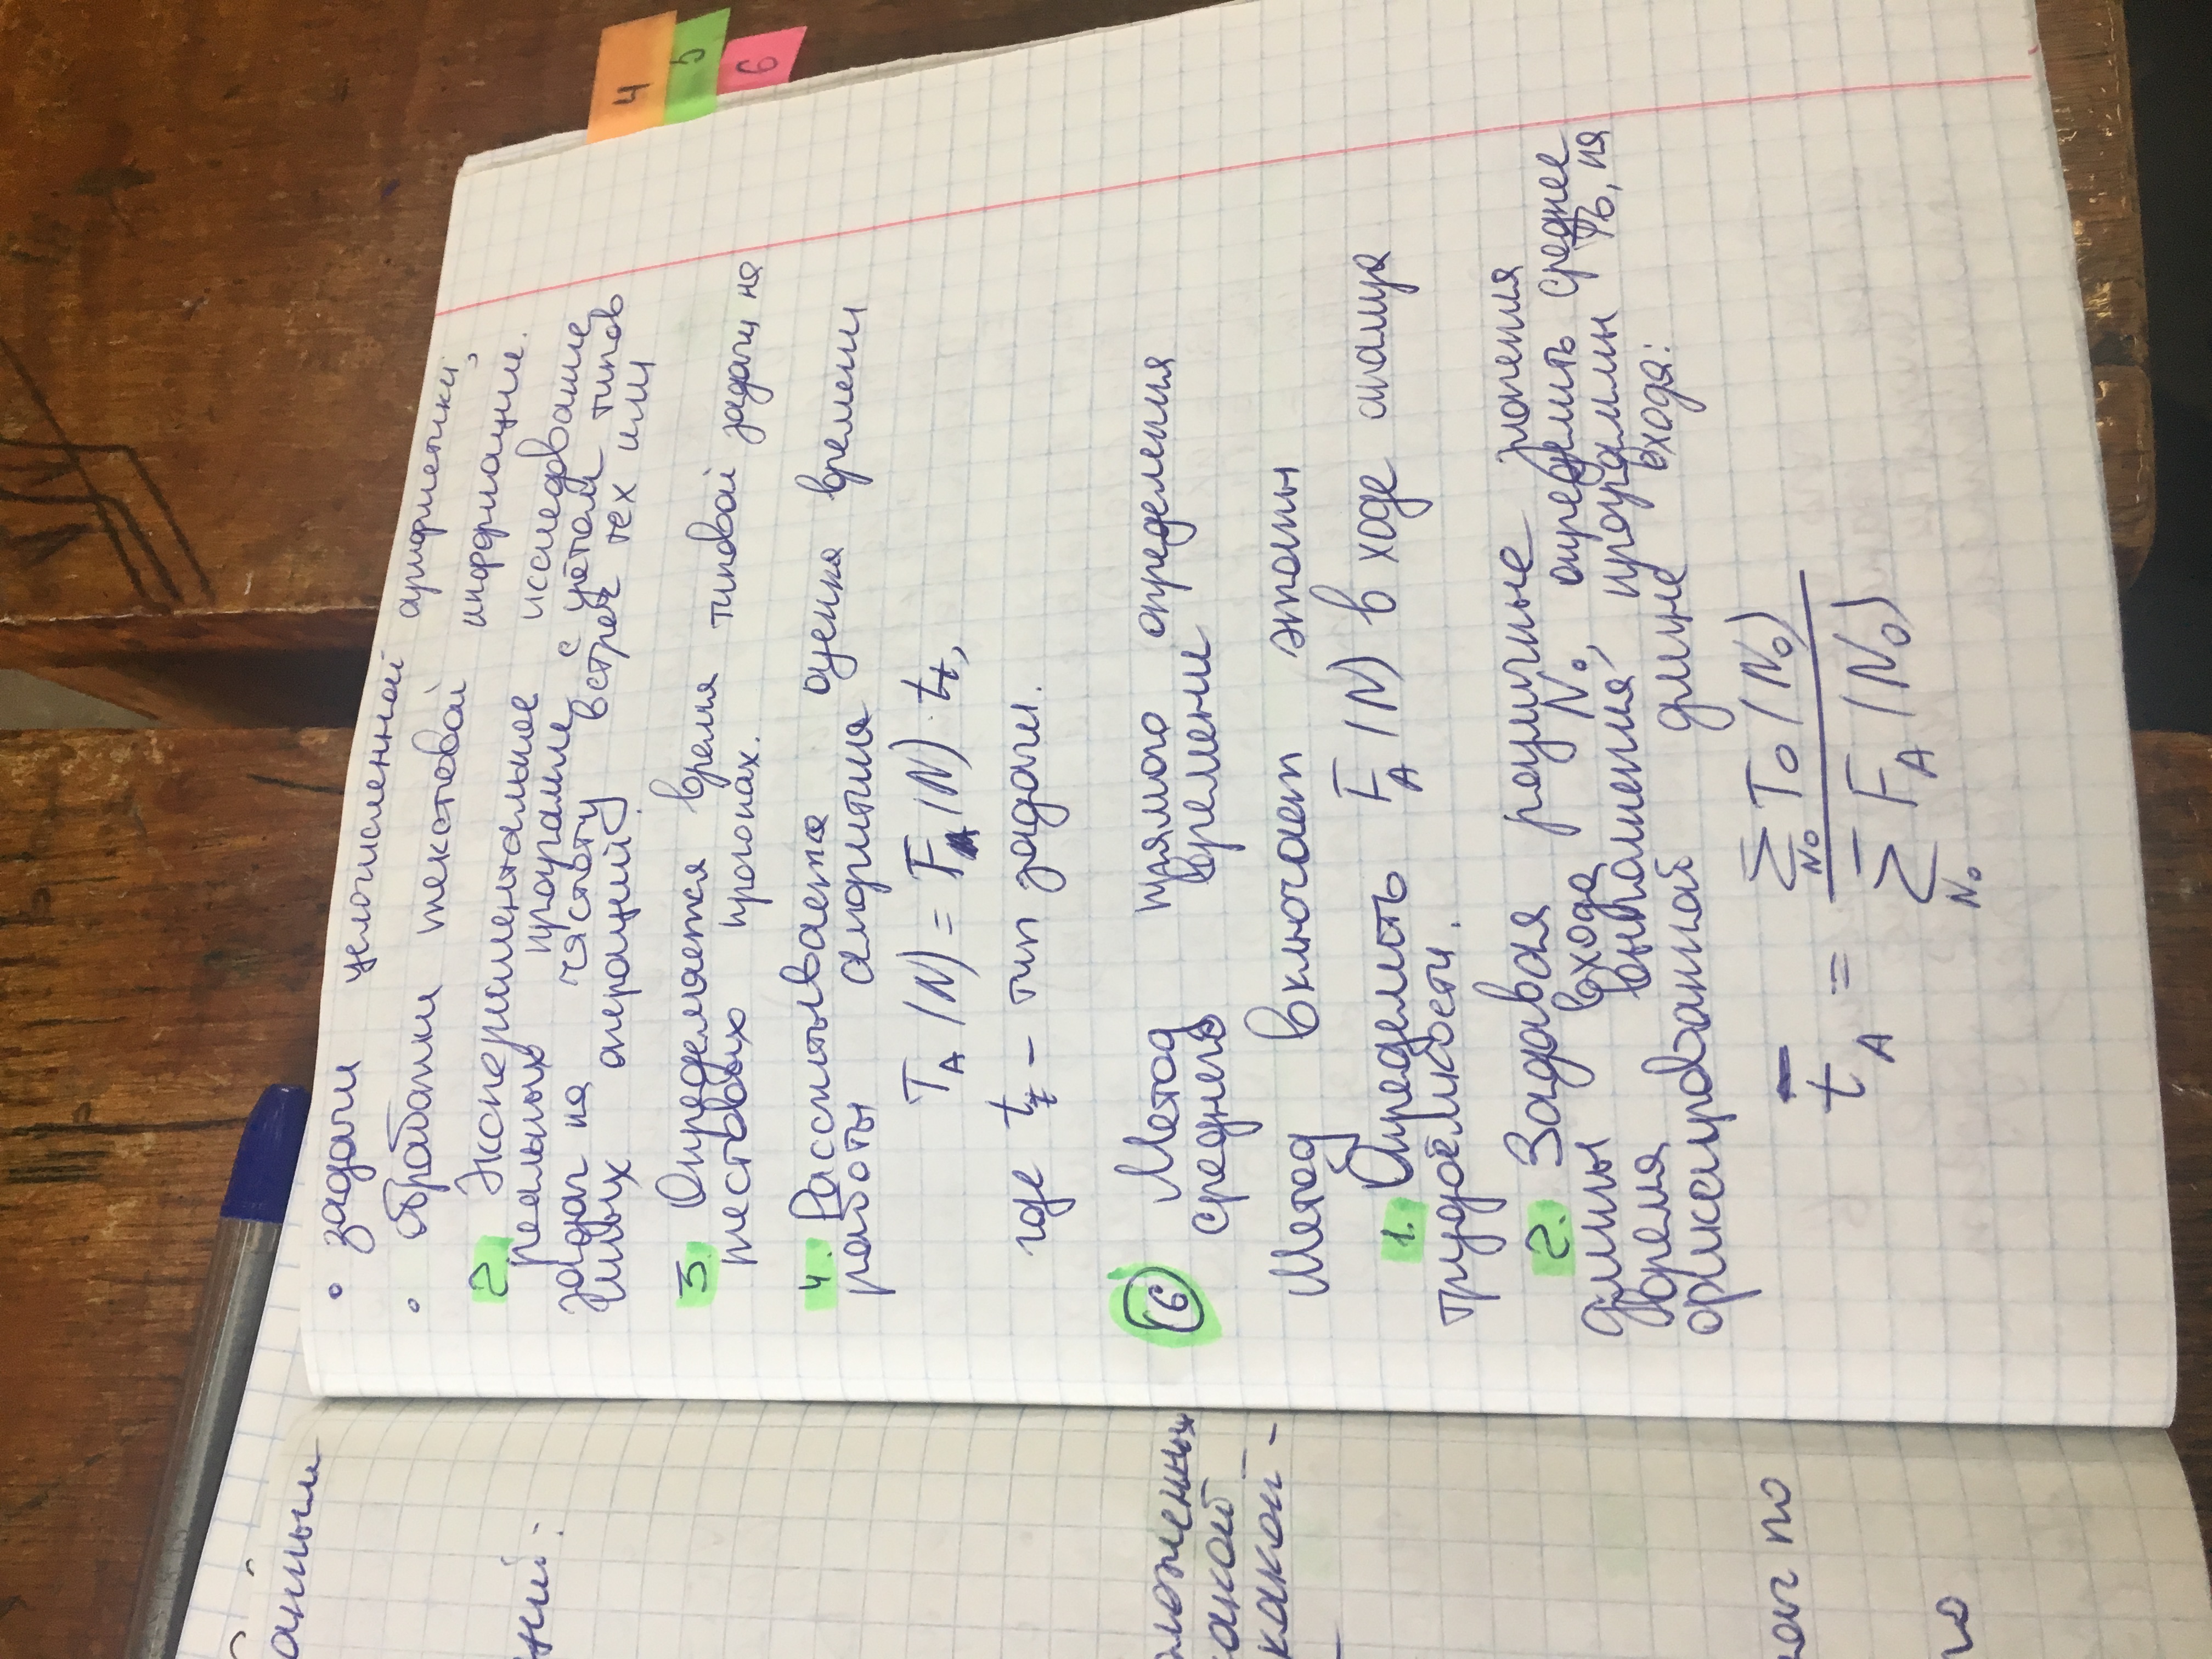 анным
ний:
ложенных
акой
какой-
ач по
го
• задачи целочисленной арифметики;
• обработки текстовой информации.
2. Экспериментальное исследование
реальных программ с учётом типов
задач на частоту встреч тех или
иных операций.
3. Определяется время типовой задачи на
тестовых прогонах.
4. Рассчитывается оценка времени
работы алгоритма
T_A (N) = F_A (N) · t_t,
где t_t – тип задачи.
6 Метод прямого определения
среднего времени
Метод включает этапы
1. Определить F_A (N) в ходе анализа
трудоёмкости.
2. Задавая различные значения
длины входа N₀, определить среднее
время выполнения программы на
фиксированной длине входа:
t̄_A = ∑_{N₀} T₀ (N₀) / ∑_{N₀} F_A (N₀)
4
5
6